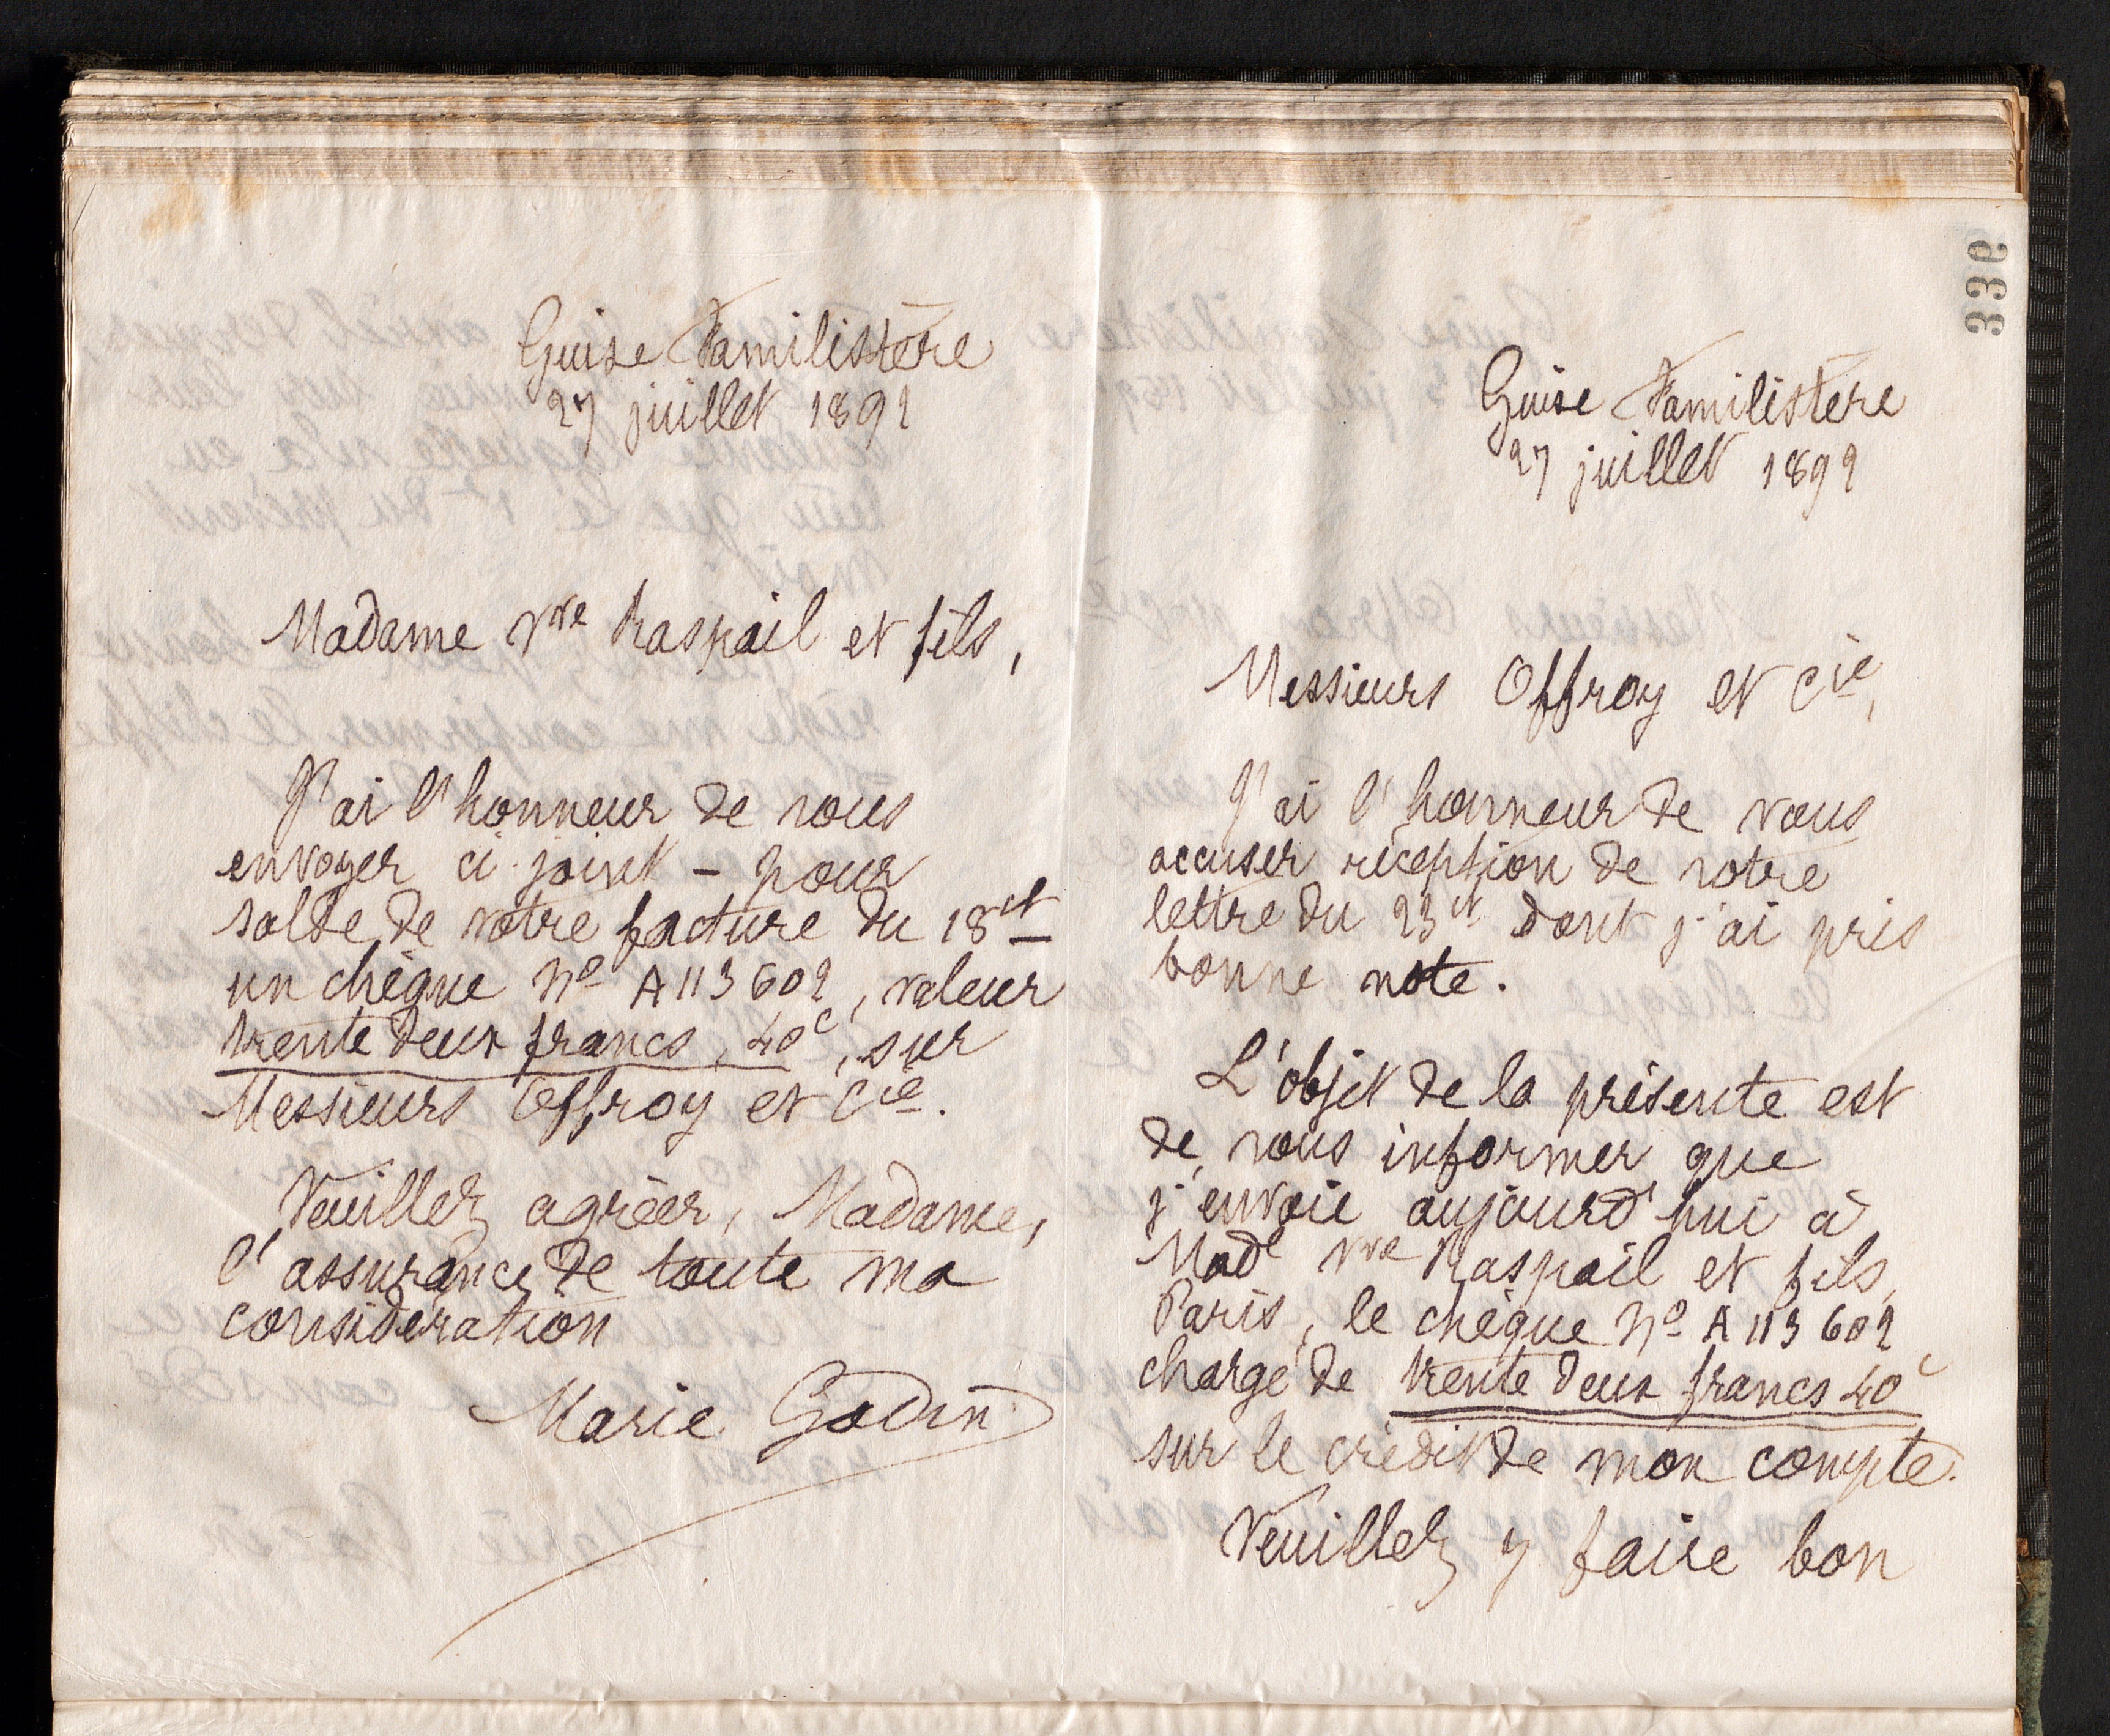 Guise Familistère
27 juillet 1892
Madame Vve Raspail et fils,
J'ai l'honneur de vous
envoyer ci-joint - pour
solde de votre facture du 18 ct
un chèque No A 113 602, valeur
trente deux francs, 40c, sur
Messieurs Offroy et Cie.
Veuillez agréer, Madame,
l'assurance de toute ma
considération
Marie Godin
336
Guise Familistère
27 juillet 1892
Messieurs Offroy et Cie,
J'ai l'honneur de vous
accuser réception de votre
lettre du 23 ct dont j'ai pris
bonne note.
L'objet de la présente est
de vous informer que
j'envoie aujourd'hui à
Made Vve Raspail et fils,
Paris, le chèque No A 113 602
chargé de trente deux francs 40c
sur le crédit de mon compte.
Veuillez y faire bon